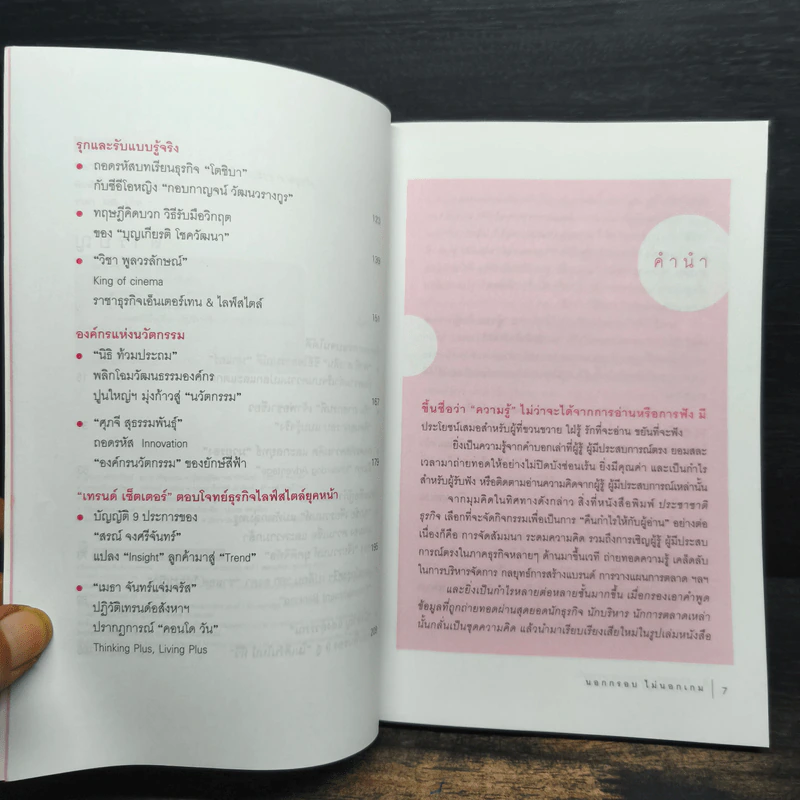 รุกและรับแบบรู้จริง
• ถอดรหัสบทเรียนธุรกิจ “โตชิบา”
กับซีอีโอหญิง “กอบกาญจน์ วัฒนวรางกูร”
• ทฤษฎีคิดบวก วิธีรับมือวิกฤต
ของ “บุญเกียรติ โชควัฒนา”
• “วิชา พูลวรลักษณ์” 139
King of cinema
ราชาธุรกิจเอ็นเตอร์เทน & ไลฟ์สไตล์
องค์กรแห่งนวัตกรรม
• “นิธิ ท้วมประถม”
พลิกโฉมวัฒนธรรมองค์กร
ปูนใหญ่ฯ มุ่งก้าวสู่ “นวัตกรรม” 167
• “ศุภจี สุธรรมพันธุ์”
ถอดรหัส Innovation
“องค์กรนวัตกรรม” ของยักษ์สีฟ้า 179
“เทรนด์ เซ็ตเตอร์” ตอบโจทย์ธุรกิจไลฟ์สไตล์ยุคหน้า
• บัญญัติ 9 ประการของ
“สรณ์ จงศรีจันทร์”
แปลง “Insight” ลูกค้ามาสู่ “Trend”
• “เมธา จันทร์แจ่มจรัส”
ปฏิวัติเทรนด์อสังหาฯ
ปรากฏการณ์ “คอนโด วัน”
Thinking Plus, Living Plus
คำนำ
ขึ้นชื่อว่า “ความรู้” ไม่ว่าจะได้จากการอ่านหรือการฟัง มี
ประโยชน์เสมอสำหรับผู้ที่ขวนขวาย ใฝ่รู้ รักที่จะอ่าน ขยันที่จะฟัง
ยิ่งเป็นความรู้จากคำบอกเล่าที่ผู้รู้ ผู้มีประสบการณ์ตรง ยอมสละ
เวลามาถ่ายทอดให้อย่างไม่ปิดบังซ่อนเร้น ยิ่งมีคุณค่า และเป็นกำไร
สำหรับผู้รับฟัง หรือติดตามอ่านความคิดจากผู้รู้ ผู้มีประสบการณ์เหล่านั้น
จากมุมคิดในทิศทางดังกล่าว สิ่งที่หนังสือพิมพ์ ประชาชาติ
ธุรกิจ เลือกที่จะจัดกิจกรรมเพื่อเป็นการ “คืนกำไรให้กับผู้อ่าน” อย่างต่อ
เนื่องก็คือ การจัดสัมมนา ระดมความคิด รวมถึงการเชิญผู้รู้ ผู้มีประสบ
การณ์ตรงในภาคธุรกิจหลายๆ ด้านมาขึ้นเวที ถ่ายทอดความรู้ เคล็ดลับ
ในการบริหารจัดการ กลยุทธ์การสร้างแบรนด์ การวางแผนการตลาด ฯลฯ
และยิ่งเป็นกำไรหลายต่อหลายชั้นมากขึ้น เมื่อกรองเอาคำพูด
ข้อมูลที่ถูกถ่ายทอดผ่านสุดยอดนักธุรกิจ นักบริหาร นักการตลาดเหล่า
นั้นกลั่นเป็นชุดความคิด แล้วนำมาเรียบเรียงเสียใหม่ในรูปเล่มหนังสือ
นอกกรอบ ไม่นอกเกม | 7